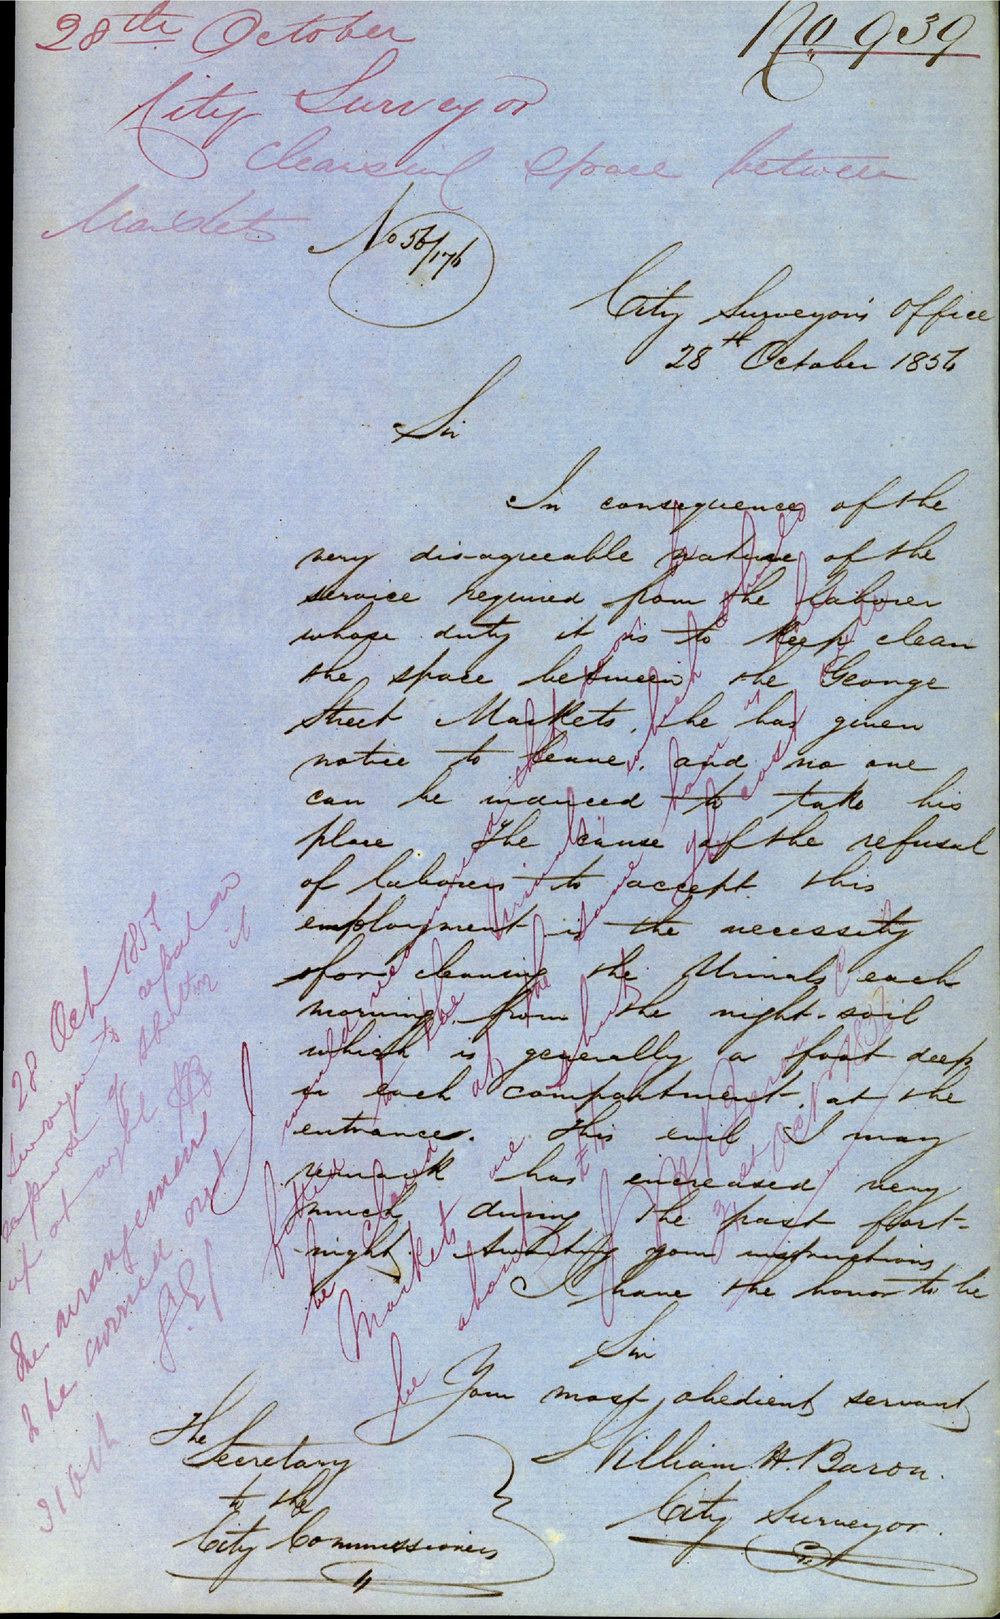 28th October
No 939
City Surveyor
Cleansing space between
Markets
No 56/176
City Surveyor's Office
28th October 1856
Sir
In consequence of the
very disagreeable nature of the
service required from the Laborer
whose duty it is to keep clean
the space between the George
Street Markets, he has given
notice to leave, and no one
can be induced to take his
place The cause of the refusal
of laborers to accept this
employment is the necessity
for cleansing the Urinals each
morning, from the night-soil
which is generally a foot deep
in each compartment, at the
entrance. This evil I may
remark has encreased very
much during the past fort-
night. Awaiting your instructions
I have the honor to be
Sir
Your most obedient servant
William H. Baron.
City Surveyor.
The
Secretary
to the
City Commissioners
28 Oct 1857
Surveyor to report on
expense of shutting it
up at night
The arrangement
to be carried out
31 Oct
be closed
Markets are
be about